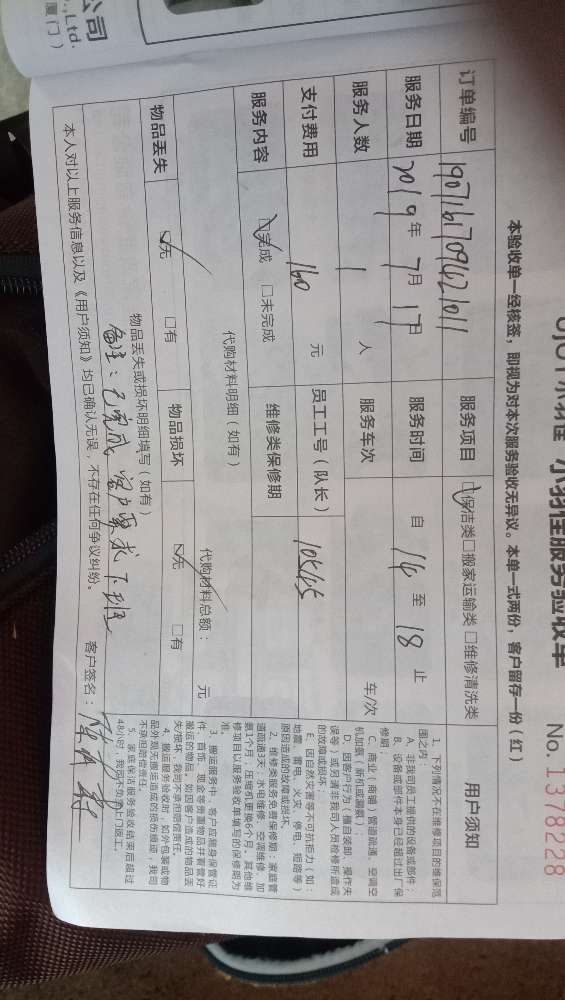 公司
.,Ltd.
厦门）
小羽佳服务验收单
No. 1378228
本验收单一经核签，即视为对本次服务验收无异议。本单一式两份，客户留存一份（红）
订单编号 190716170916221011 服务项目 ☑保洁类□搬家运输类 □维修清洗类
服务日期 2019年 7月 17日 服务时间 自 14 至 18 止
服务人数 1 人 服务车次 车/次
支付费用 160 元 员工工号（队长） 10545
服务内容 ☑完成 □未完成 维修类保修期
代购材料明细（如有）
代购材料总额： 元
物品丢失 ☑无 □有 物品损坏 ☑无 □有
物品丢失或损坏明细填写（如有）
备注：已完成 客户要求下班
本人对以上服务信息以及《用户须知》均已确认无误，不存在任何争议纠纷。 客户签名：
用户须知
1、下列情况不在维修项目的维保范
围之内：
A、非我司员工提供的设备或部件；
B、设备或部件本身已经超过出厂保
修期；
C、商业（商铺）管道疏通、空调空
机加氨（新机或漏氨）；
D、因客户行为（擅自装卸、操作失
误等）或另请非我司人员检修所造成
的故障或损坏；
E、因自然灾害等不可抗拒力（如：
地震、雷电、火灾、停电、短路等）
原因造成的故障或损坏。
2、维修类服务免费保修期：家庭管
道疏通3天；水电维修、空调维修、加
氨1个月；压缩机更换6个月，其他维
修项目以服务验收单填写的保修期为
准。
3、搬运服务中，客户应随身保管证
件、首饰、现金等贵重物品并看管好
搬运的物品，如因客户造成的物品丢
失/损坏，我司不承担赔偿责任。
4、搬运服务验收时，如外包装或物
品外观无磨损造成的损伤痕迹，我司
不承担赔偿责任。
5、家庭保洁服务验收结束后超过
48小时，我司不负责上门返工。